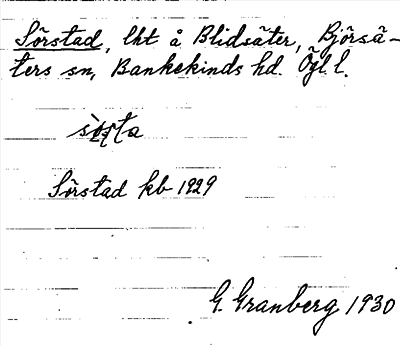 Sörstad, lht å Blidsäter, Björsä-
ters sn, Bankekinds hd. Ögl l.
Sörstad kb 1929
G. Granberg 1930